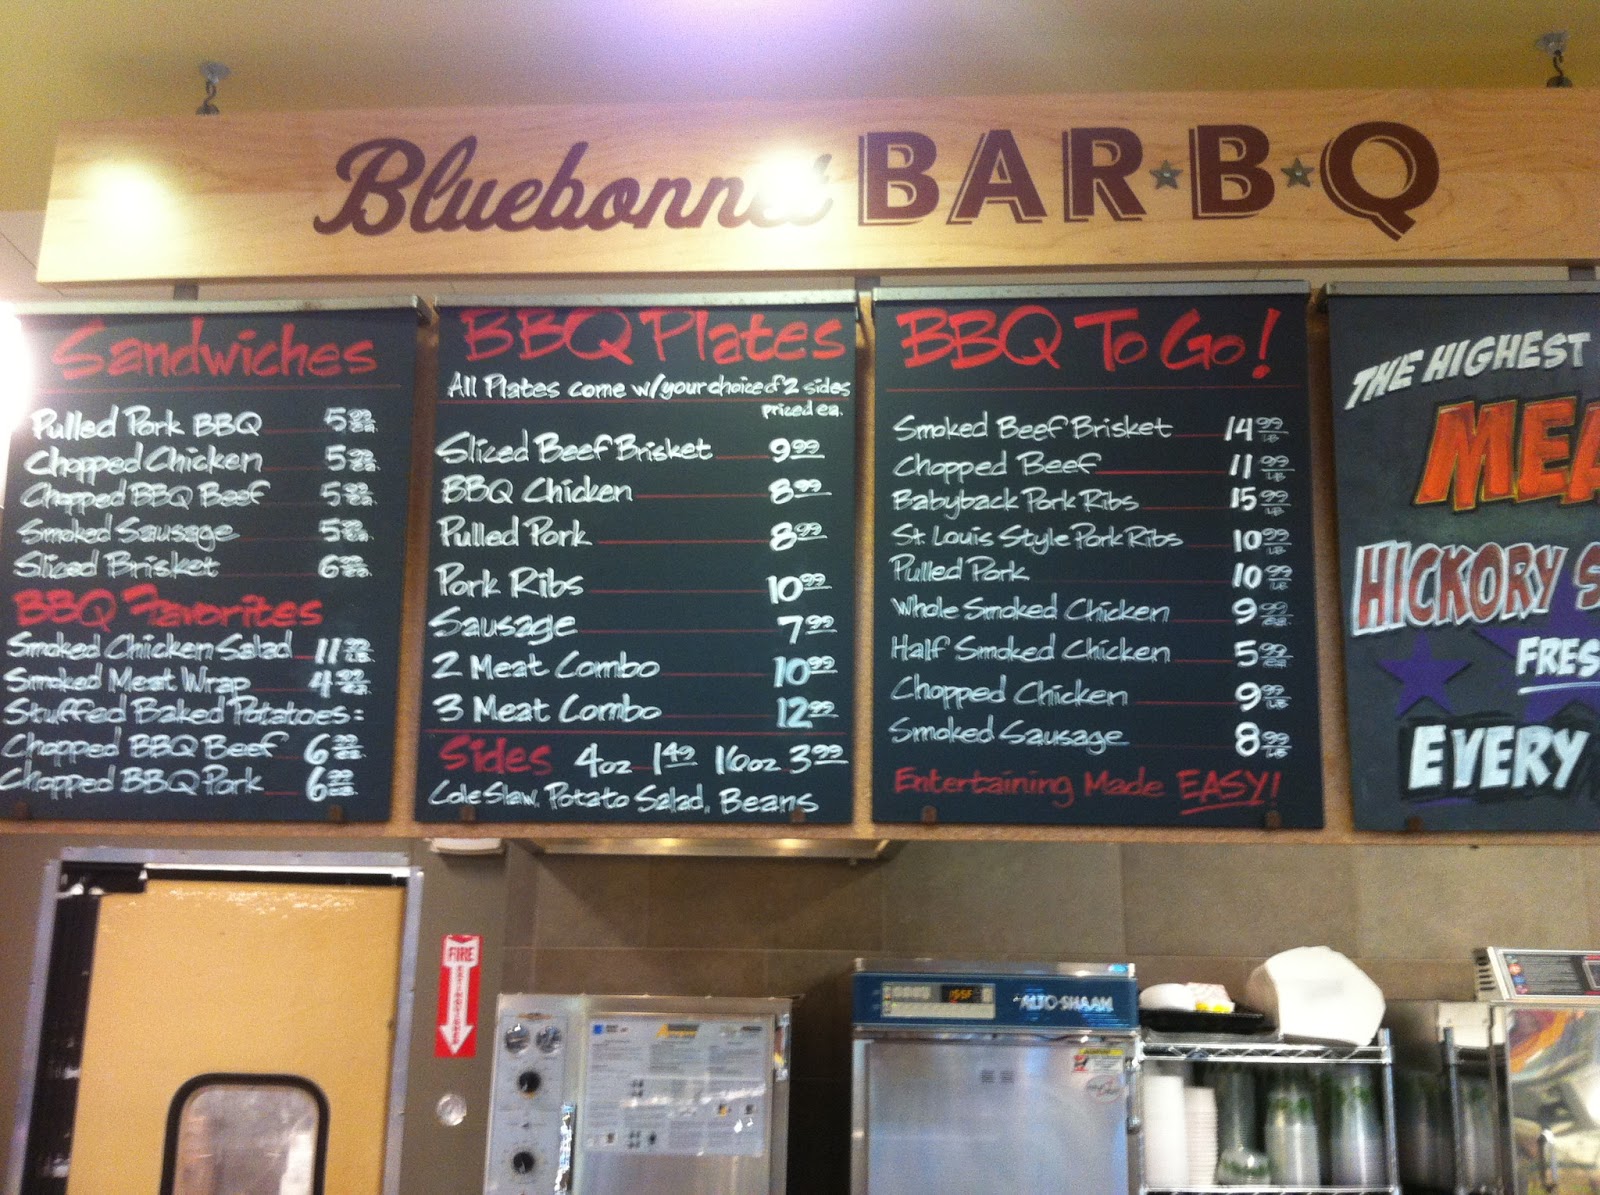 Bluebonnet BAR·B·Q
Sandwiches
Pulled Pork BBQ 5.99 ea.
Chopped Chicken 5.99 ea.
Chopped BBQ Beef 5.99 ea.
Smoked Sausage 5.99 ea.
Sliced Brisket 6.99 ea.
BBQ Favorites
Smoked Chicken Salad 11.99 lb.
Smoked Meat Wrap 4.99 ea.
Stuffed Baked Potatoes:
Chopped BBQ Beef 6.99 ea.
Chopped BBQ Pork 6.99 ea.
BBQ Plates
All Plates come w/your choice of 2 sides
priced ea.
Sliced Beef Brisket 9.99
BBQ Chicken 8.99
Pulled Pork 8.99
Pork Ribs 10.99
Sausage 7.99
2 Meat Combo 10.99
3 Meat Combo 12.99
Sides 4oz 1.49 16oz 3.99
Cole Slaw, Potato Salad, Beans
BBQ To Go!
Smoked Beef Brisket 14.99 LB
Chopped Beef 11.99 LB
Babyback Pork Ribs 15.99 LB
St Louis Style Pork Ribs 10.99 LB
Pulled Pork 10.99 LB
Whole Smoked Chicken 9.99 ea.
Half Smoked Chicken 5.99 ea.
Chopped Chicken 9.99 LB
Smoked Sausage 8.99 LB
Entertaining Made EASY!
THE HIGHEST
MEA
HICKORY S
FRES
EVERY
FIRE
EXTINGUISHER
ALTO-SHAAM